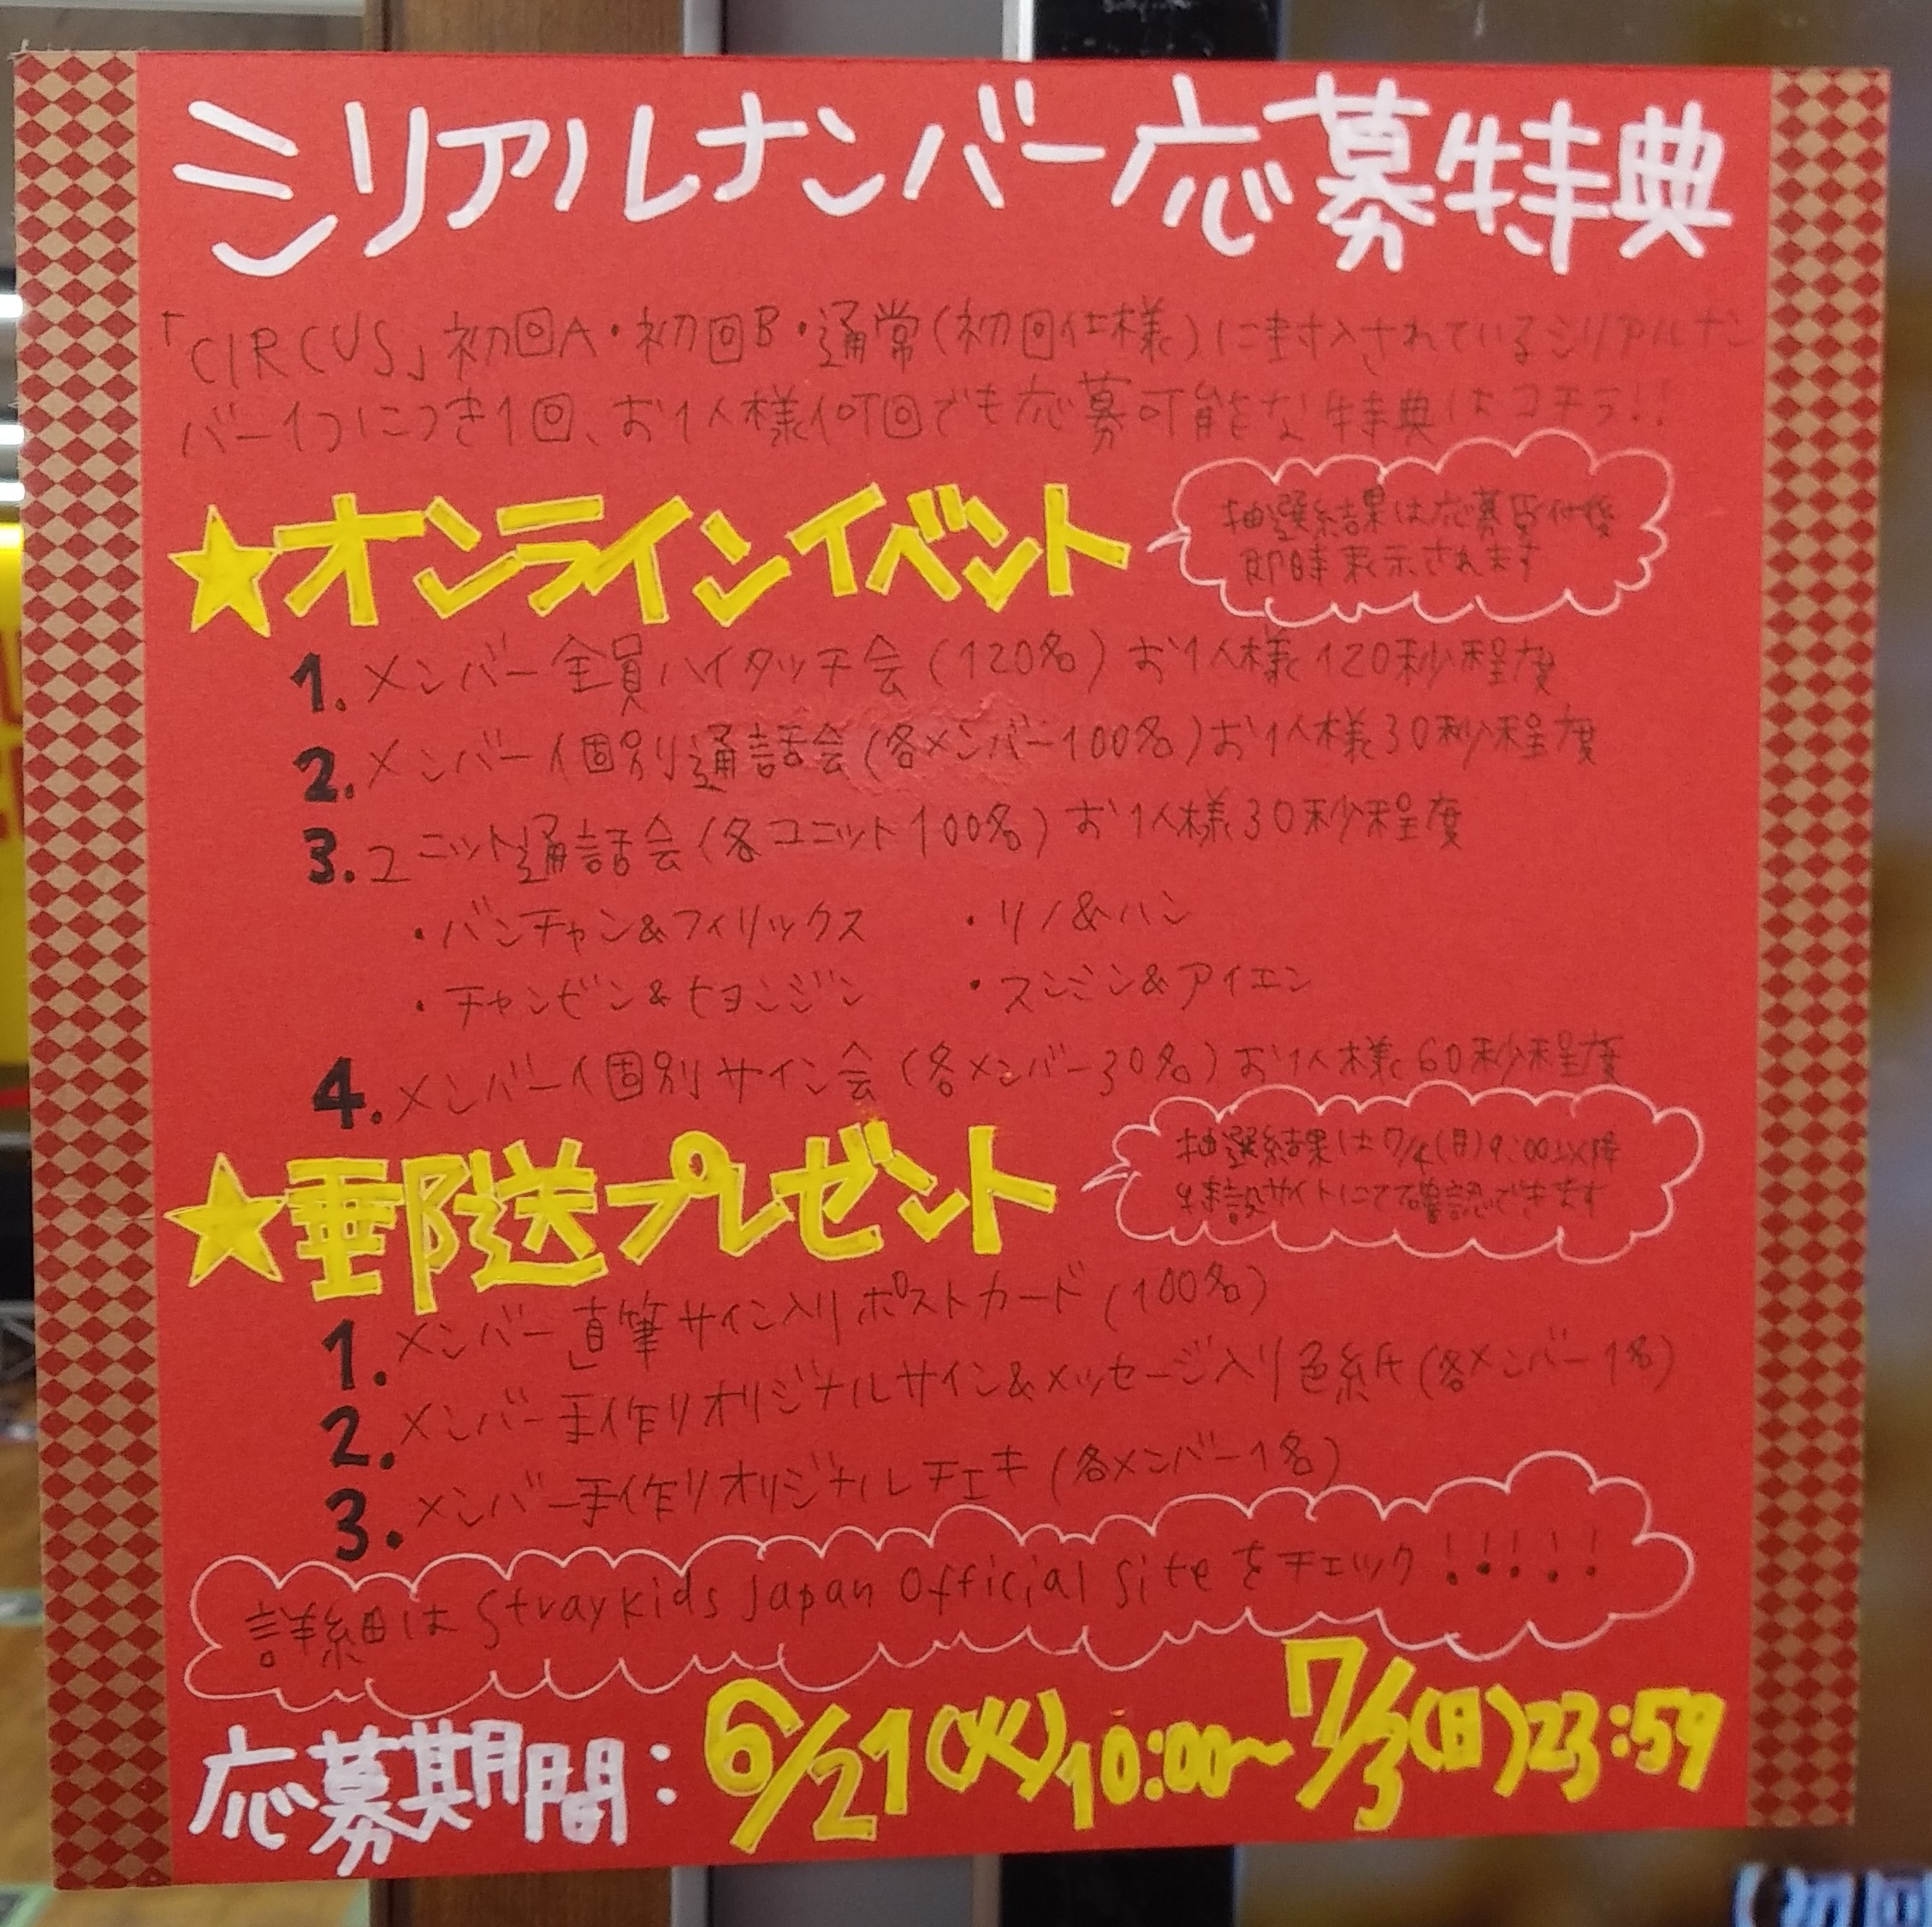 シリアルナンバー応募特典
「CIRCUS」初回A・初回B・通常(初回仕様)に封入されているシリアルナン
バー1つにつき1回、お1人様何回でも応募可能な特典はコチラ!!
★オンラインイベント
抽選結果は応募受付後
即時表示されます
1.メンバー全員ハイタッチ会(120名)お1人様120秒程度
2.メンバー個別通話会(各メンバー100名)お1人様30秒程度
3.ユニット通話会(各ユニット100名)お1人様30秒程度
・バンチャン&フィリックス ・リノ&ハン
・チャンビン&ヒョンジン ・スンミン&アイエン
4.メンバー個別サイン会(各メンバー30名)お1人様60秒程度
★郵送プレゼント
抽選結果は7/4(月)9:00以降
特設サイトにて確認できます
1.メンバー直筆サイン入りポストカード(100名)
2.メンバー手作りオリジナルサイン&メッセージ入り色紙(各メンバー1名)
3.メンバー手作りオリジナルチェキ(各メンバー1名)
詳細はStraykids Japan Official Siteをチェック!!!!!
応募期間:6/21(火)10:00~7/3(日)23:59